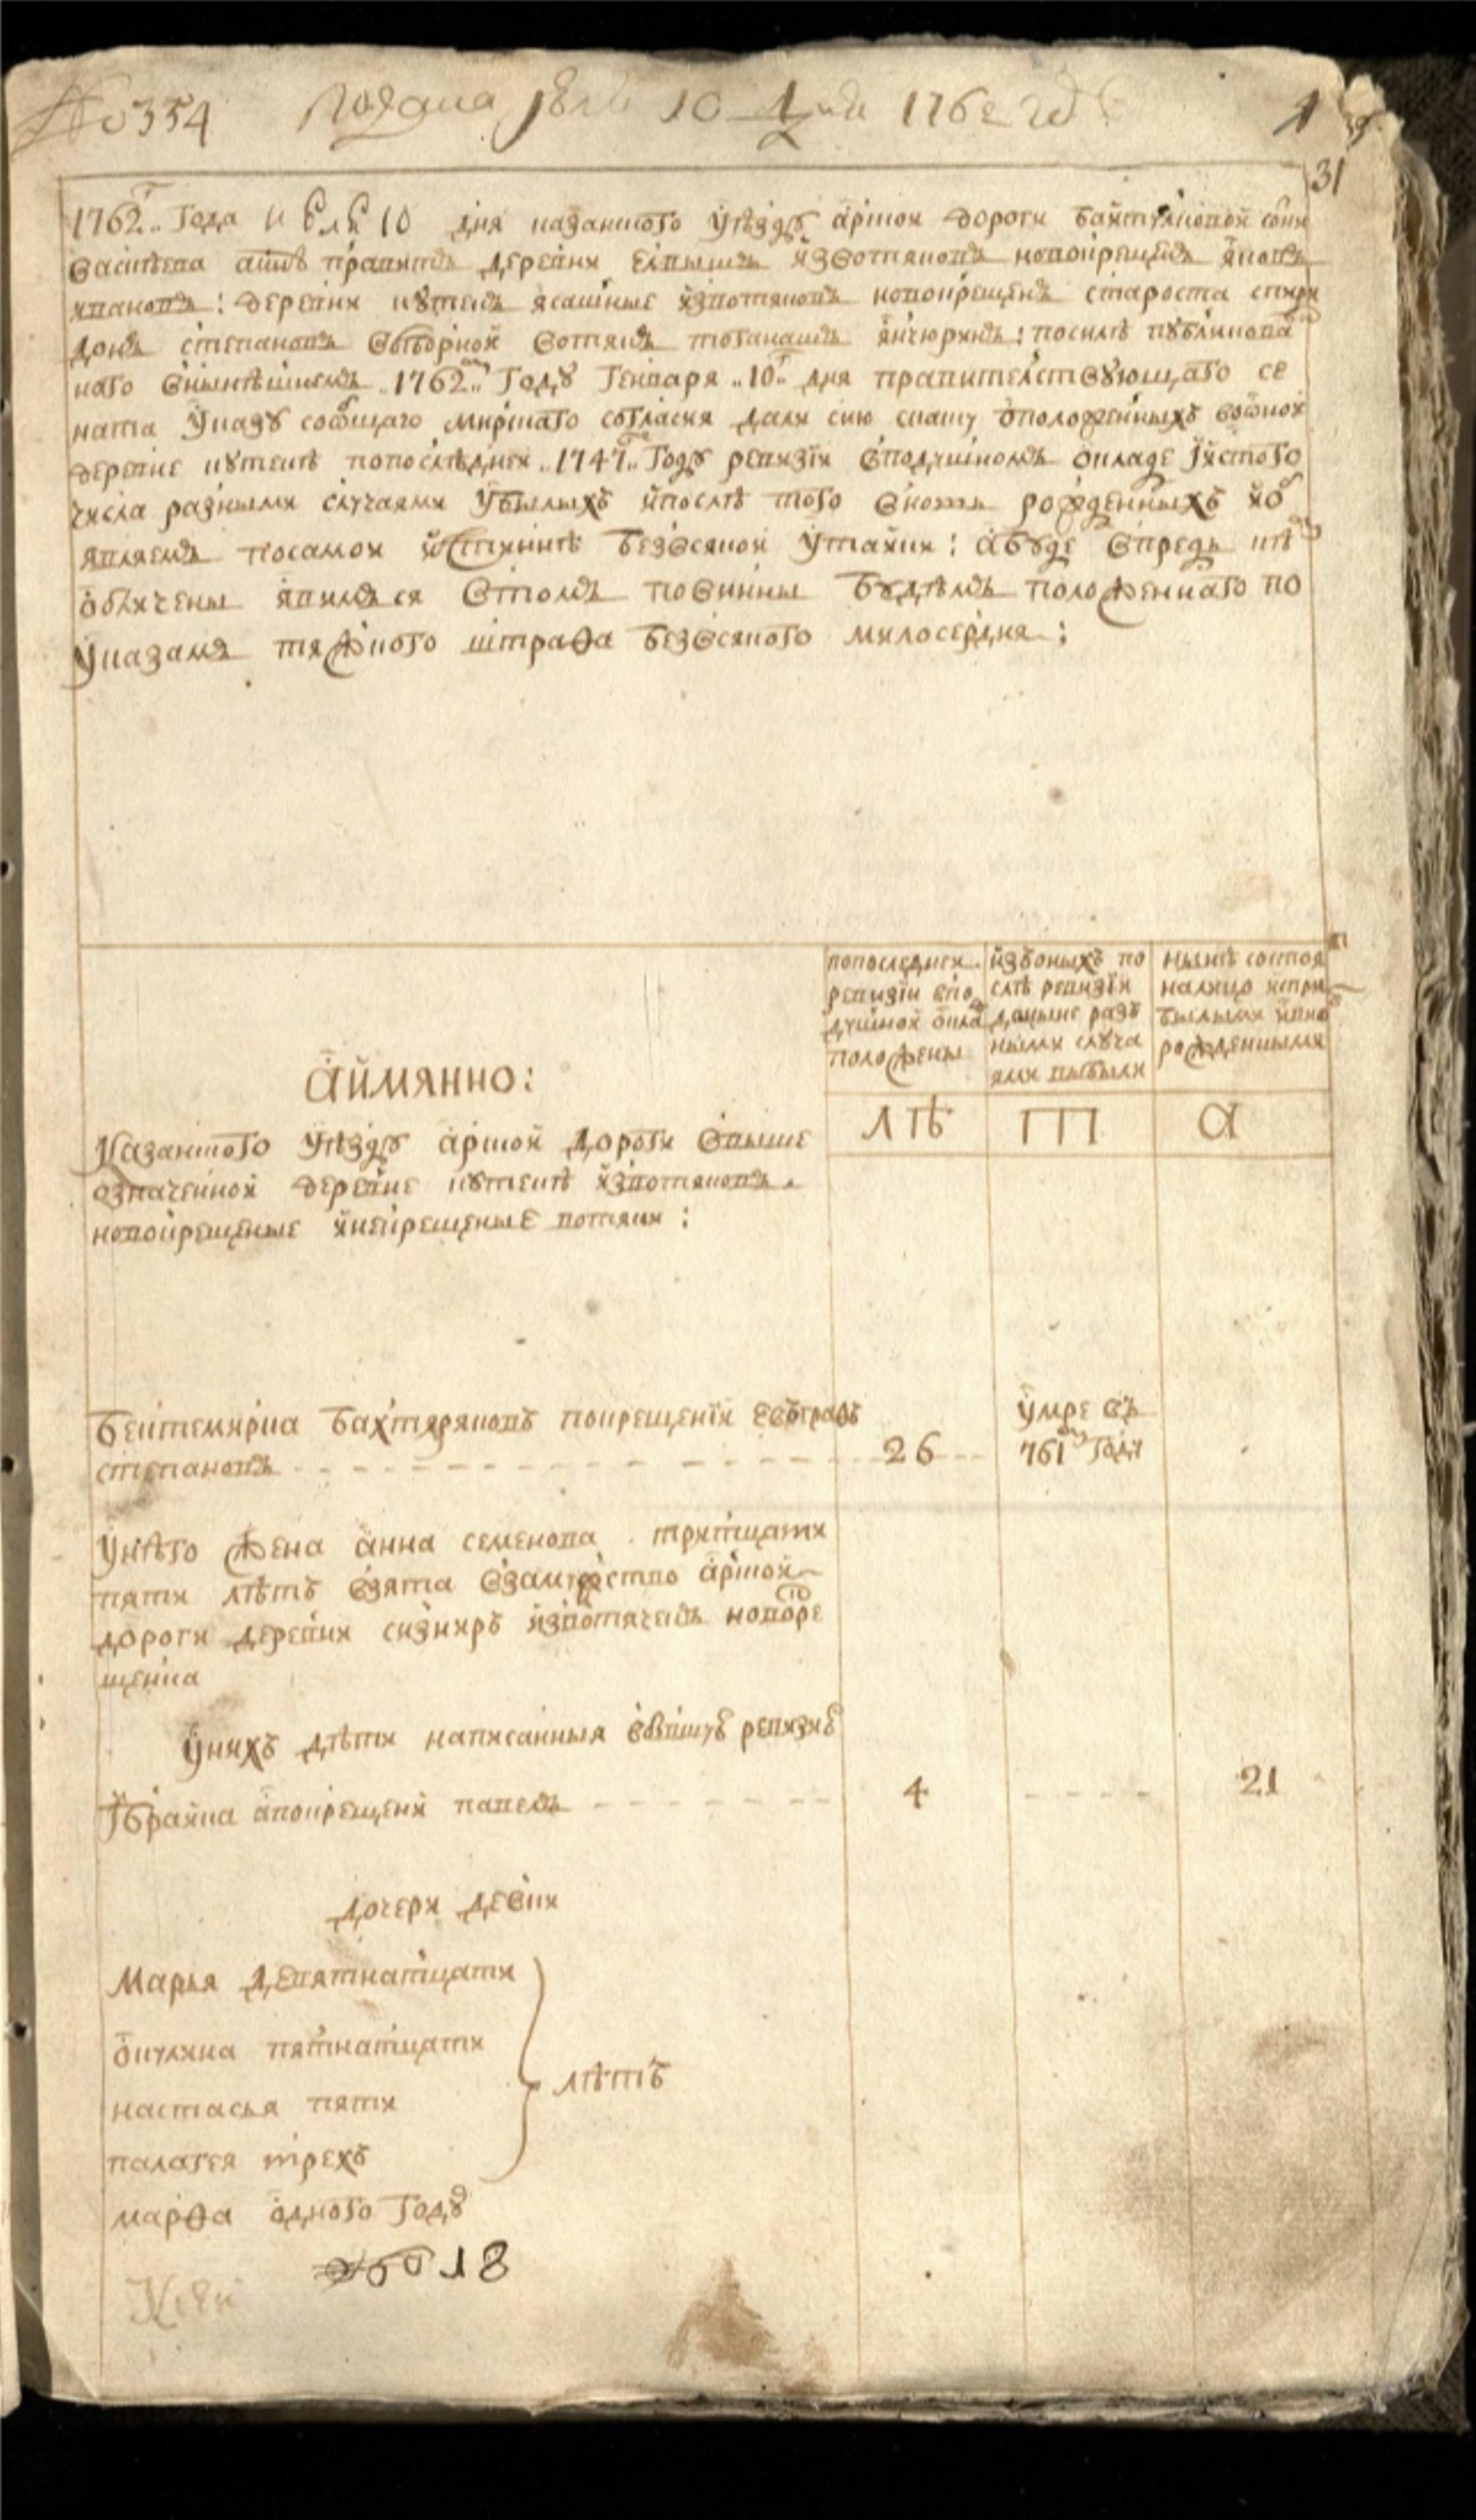 № 354 Подана июля 10 дня 1762 году 1
31
1762 г. Года июля 10 дня казанского уѣзду арской дороги
васильева а нынѣ правитъ деревни елвышъ из вотяковъ новокрещенъ яковъ
ивановъ: деревни кутекъ ясашные из вотяковъ новокрещенъ староста спири
донъ степановъ выборной вотякъ тоганашъ янчюринъ: посилѣ публикова
наго в нынѣшнемъ 1762м Году генваря 10г дня правителствующаго се
ната указу с общаго мирскаго согласия дали сию скаску о положенныхъ в оной
деревне кутекѣ по последней 1747г Году ревизии в подушномъ окладе и ис того
числа разными случаями убылыхъ и послѣ того вновь рожденныхъ и об
являемъ по самой истиннѣ без всякой утайки: а буде впредь в чем
обличены явимъся в томъ повинны будѣмъ положеннаго по
указамъ тяжкого штрафа без всякого милосердия:
по последней ревизии в по душной окла положены
из оныхъ по слѣ ревизии до ныне раз ными случа ями выбыли
нынѣ состоя налицо и с при былыми и вно рожденными
а имянно:
лѣ
Казанского уѣзду арской дороги в выше
означенной деревне кутекѣ из вотяковъ
новокрещеные и некрещеные вотяки:
Бектемирка Бахтияриковъ по крещении евграфъ
степановъ 26 умре въ 761м году
у него жена анна семенова тритцати
пяти лѣтъ взята в замужство арской
дороги деревни сизниръ из вотячекъ новокре
щенка
у нихъ дѣти написанныя в бывшую ревизию
Ибрайка а по крещени павелъ 4 21
дочери девки
Марья девятнатцати
окулина пятнатцати
настасья пяти
лѣтъ
палагея трехъ
марфа одного году
18